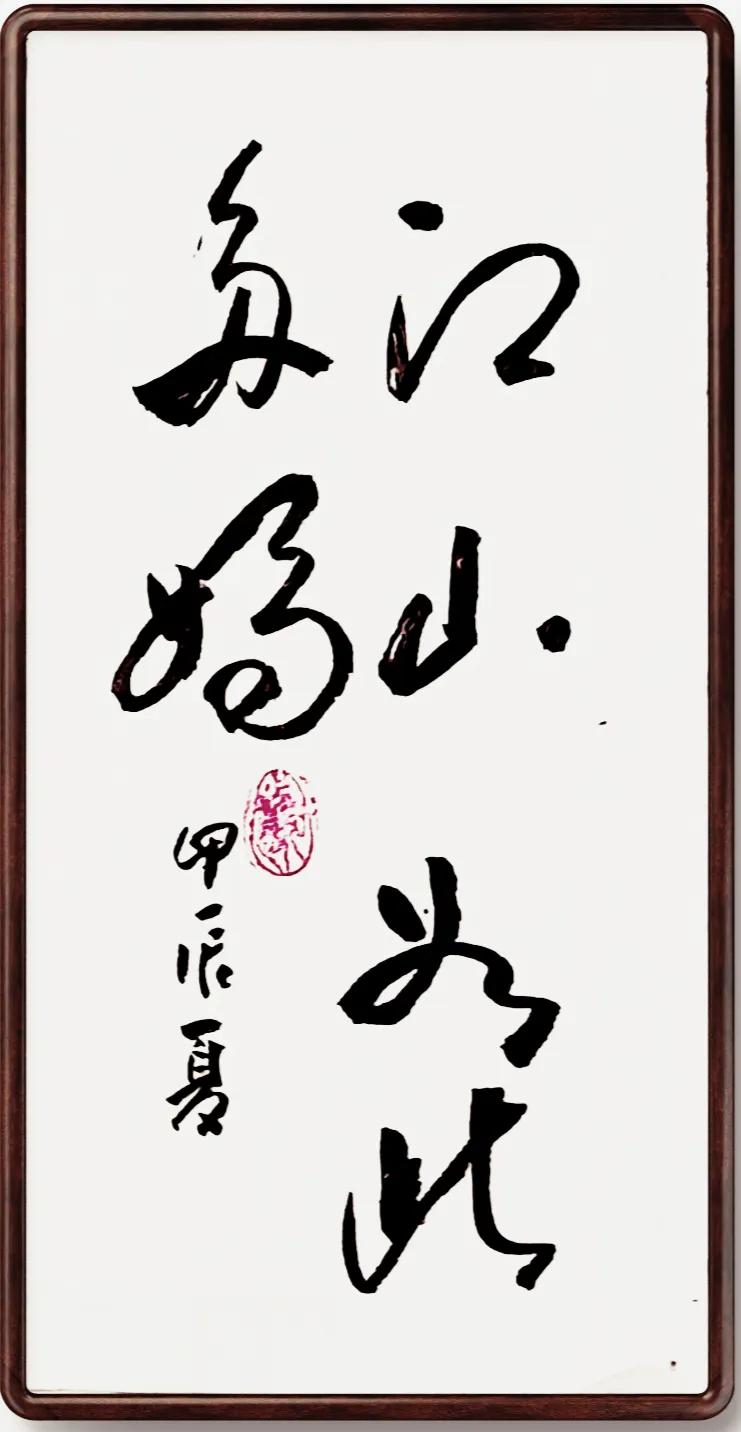 江山如此
多娇
甲辰夏